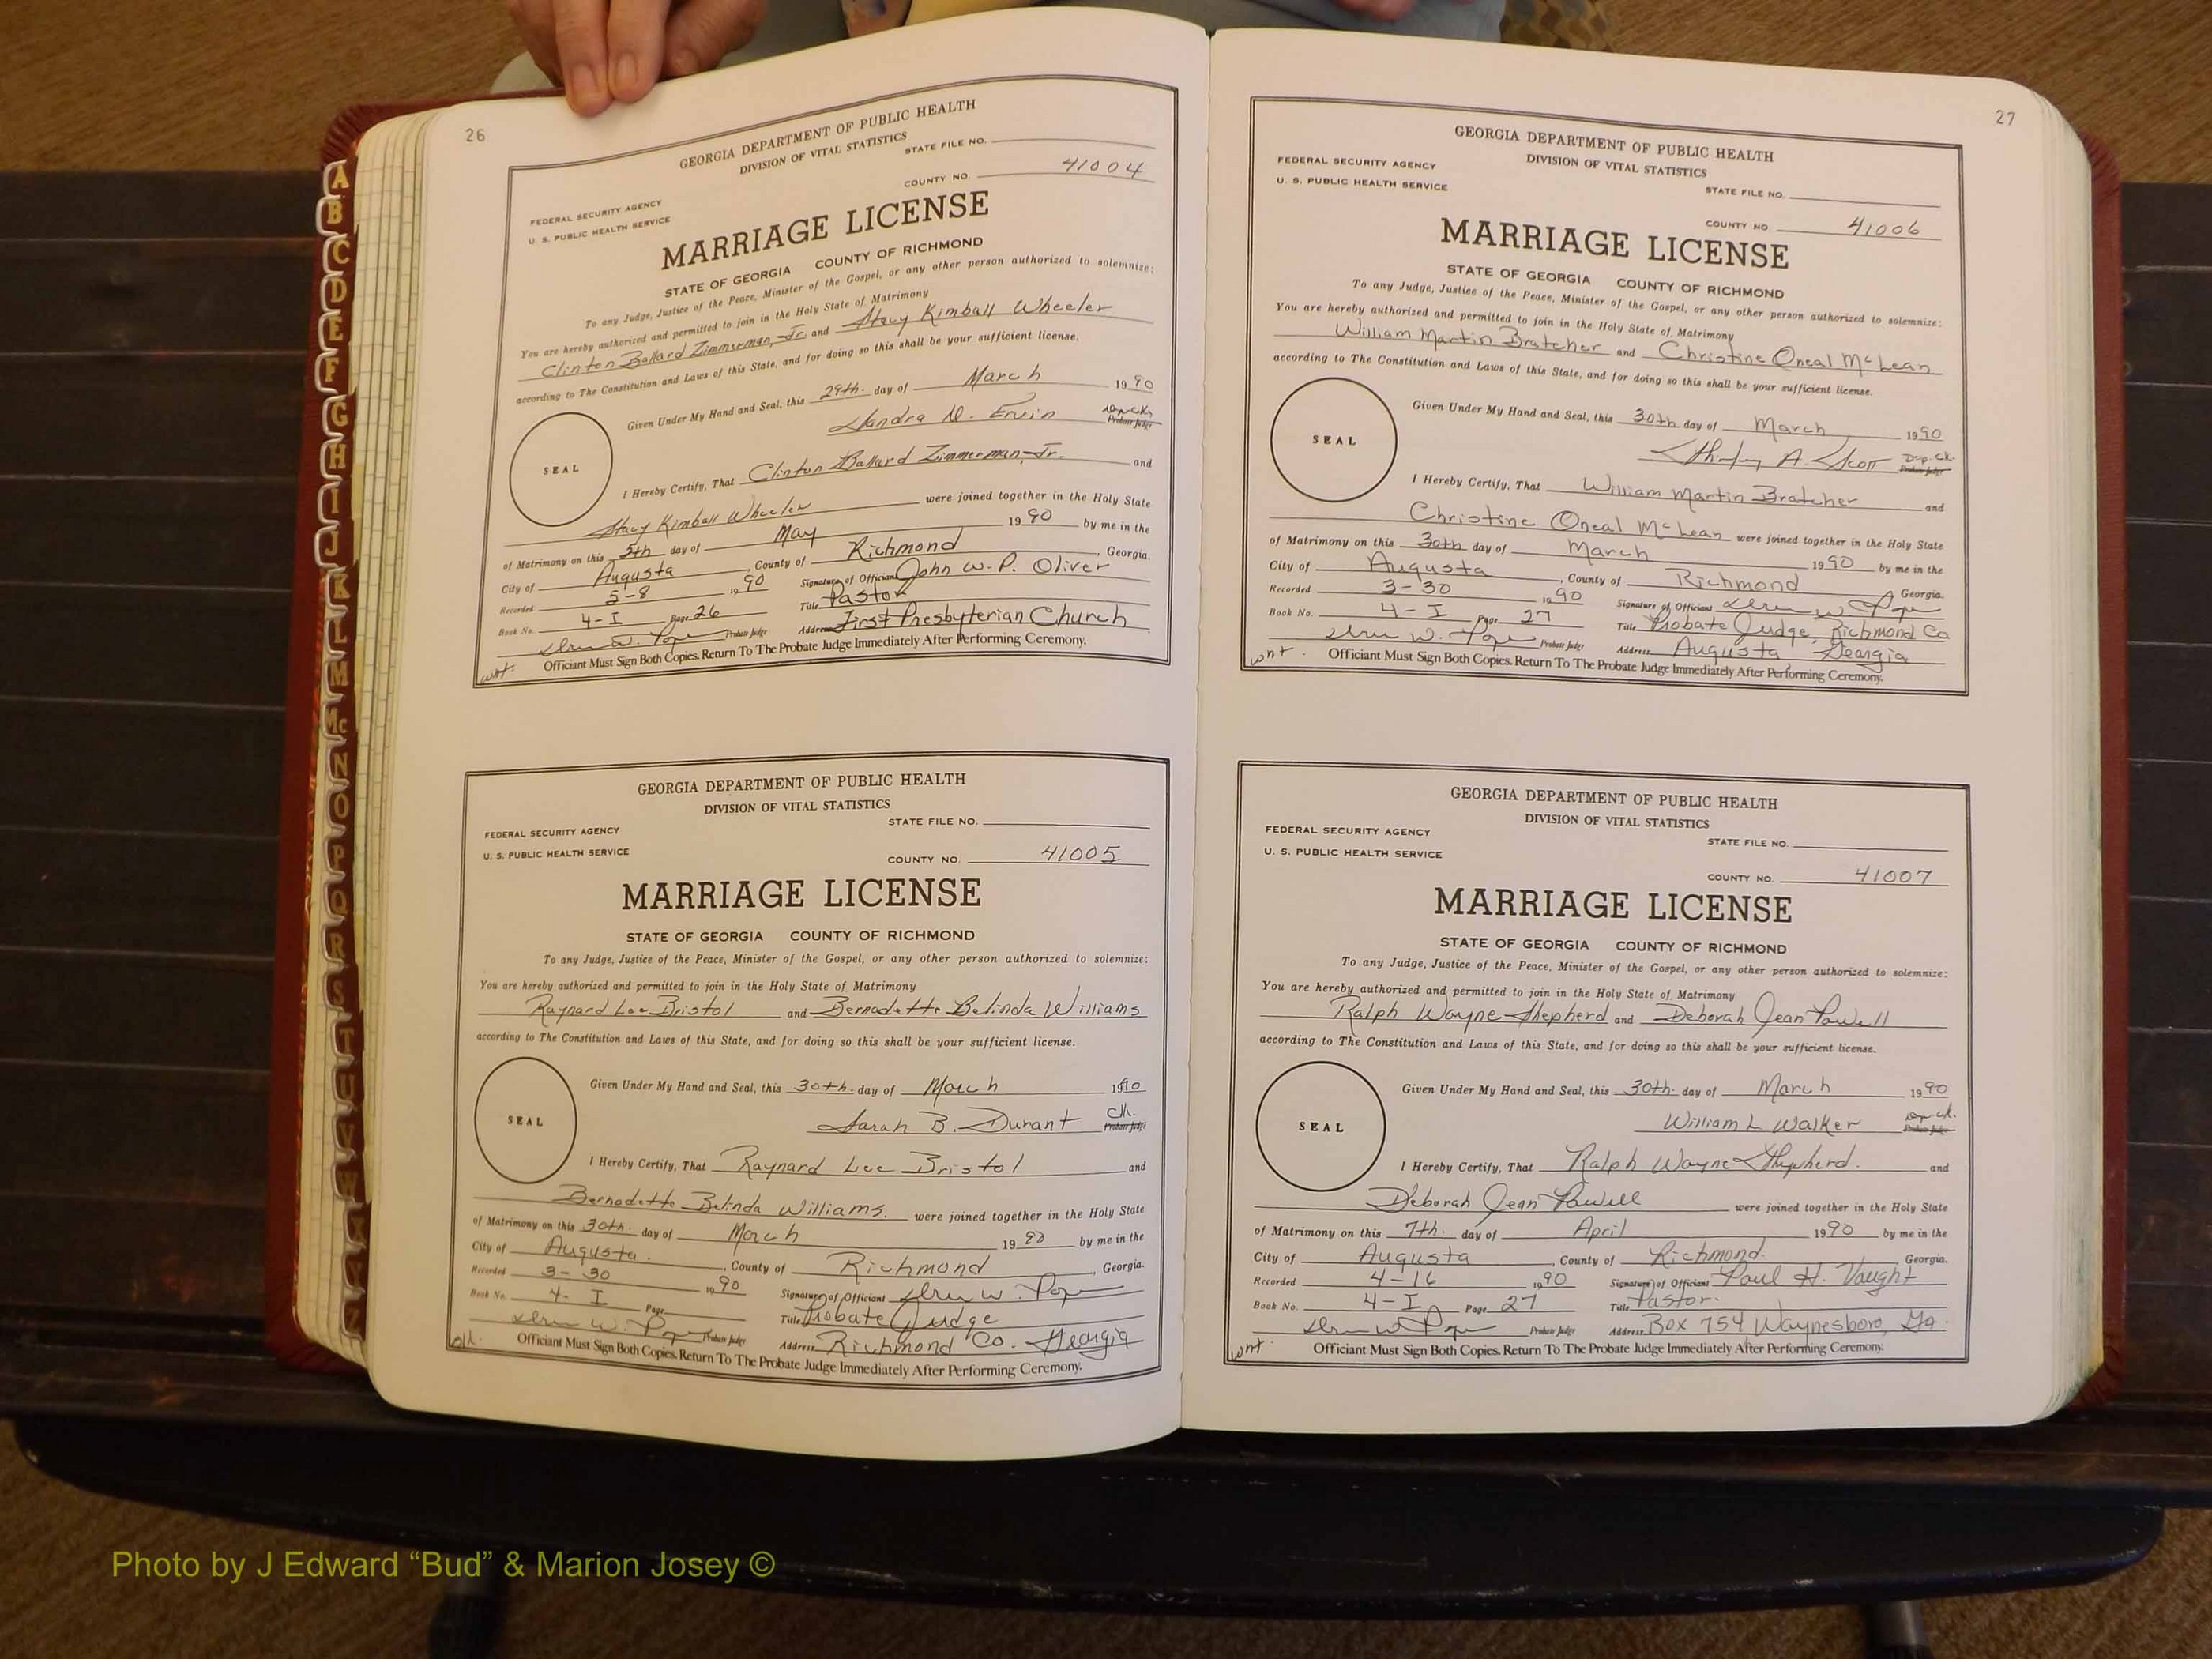 26
GEORGIA DEPARTMENT OF PUBLIC HEALTH
DIVISION OF VITAL STATISTICS
STATE FILE NO.
FEDERAL SECURITY AGENCY
U. S. PUBLIC HEALTH SERVICE
COUNTY NO. 41004
MARRIAGE LICENSE
STATE OF GEORGIA COUNTY OF RICHMOND
To any Judge, Justice of the Peace, Minister of the Gospel, or any other person authorized to solemnize:
You are hereby authorized and permitted to join in the Holy State of Matrimony
Clinton Ballard Zimmerman, Jr. and Stacy Kimball Wheeler
according to The Constitution and Laws of this State, and for doing so this shall be your sufficient license.
Given Under My Hand and Seal, this 29th. day of March 1990
Sandra D. Ervin Dep. Clk. Probate Judge
SEAL
I Hereby Certify, That Clinton Ballard Zimmerman, Jr. and
Stacy Kimball Wheeler were joined together in the Holy State
of Matrimony on this 5th day of May 1990 by me in the
City of Augusta, County of Richmond, Georgia.
Recorded 5-8 1990 Signature of Officiant John W. P. Oliver
Book No. 4-I Page 26 Title Pastor
Probate Judge Address First Presbyterian Church
wnt. Officiant Must Sign Both Copies. Return To The Probate Judge Immediately After Performing Ceremony.
GEORGIA DEPARTMENT OF PUBLIC HEALTH
DIVISION OF VITAL STATISTICS
STATE FILE NO.
FEDERAL SECURITY AGENCY
U. S. PUBLIC HEALTH SERVICE
COUNTY NO. 41005
MARRIAGE LICENSE
STATE OF GEORGIA COUNTY OF RICHMOND
To any Judge, Justice of the Peace, Minister of the Gospel, or any other person authorized to solemnize:
You are hereby authorized and permitted to join in the Holy State of Matrimony
Raynard Lee Bristol and Bernadette Belinda Williams
according to The Constitution and Laws of this State, and for doing so this shall be your sufficient license.
Given Under My Hand and Seal, this 30th. day of March 1990
Sarah B. Durant Clk. Probate Judge
SEAL
I Hereby Certify, That Raynard Lee Bristol and
Bernadette Belinda Williams. were joined together in the Holy State
of Matrimony on this 30th. day of March 1990 by me in the
City of Augusta. , County of Richmond, Georgia.
Recorded 3-30 1990 Signature of Officiant
Book No. 4-I Page Title Probate Judge
Probate Judge Address Richmond Co. Georgia
Officiant Must Sign Both Copies. Return To The Probate Judge Immediately After Performing Ceremony.
27
GEORGIA DEPARTMENT OF PUBLIC HEALTH
DIVISION OF VITAL STATISTICS
FEDERAL SECURITY AGENCY
U. S. PUBLIC HEALTH SERVICE
STATE FILE NO.
COUNTY NO 41006
MARRIAGE LICENSE
STATE OF GEORGIA COUNTY OF RICHMOND
To any Judge, Justice of the Peace, Minister of the Gospel, or any other person authorized to solemnize:
You are hereby authorized and permitted to join in the Holy State of Matrimony
William Martin Bratcher and Christine Oneal McLean
according to The Constitution and Laws of this State, and for doing so this shall be your sufficient license.
Given Under My Hand and Seal, this 30th day of March 1990
A. Scott Dep. Clk. Probate Judge
SEAL
I Hereby Certify, That William Martin Bratcher and
Christine Oneal McLean were joined together in the Holy State
of Matrimony on this 30th day of March 1990 by me in the
City of Augusta, County of Richmond Georgia.
Recorded 3-30 1990 Signature of Officiant
Book No. 4-I Page 27 Title Probate Judge, Richmond Co
Probate Judge Address Augusta Georgia
wnt. Officiant Must Sign Both Copies. Return To The Probate Judge Immediately After Performing Ceremony.
GEORGIA DEPARTMENT OF PUBLIC HEALTH
DIVISION OF VITAL STATISTICS
FEDERAL SECURITY AGENCY
STATE FILE NO.
U. S. PUBLIC HEALTH SERVICE
COUNTY NO. 41007
MARRIAGE LICENSE
STATE OF GEORGIA COUNTY OF RICHMOND
To any Judge, Justice of the Peace, Minister of the Gospel, or any other person authorized to solemnize:
You are hereby authorized and permitted to join in the Holy State of Matrimony
Ralph Wayne Shepherd and Deborah Jean Powell
according to The Constitution and Laws of this State, and for doing so this shall be your sufficient license.
Given Under My Hand and Seal, this 30th. day of March 1990
William L Walker Dep. Clk. Probate Judge
SEAL
I Hereby Certify, That Ralph Wayne Shepherd. and
Deborah Jean Powell were joined together in the Holy State
of Matrimony on this 7th. day of April 1990 by me in the
City of Augusta, County of Richmond. Georgia.
Recorded 4-16 1990 Signature of Officiant Paul H. Vaught
Book No. 4-I Page 27 Title Pastor.
Probate Judge Address Box 754 Waynesboro, Ga.
wnt. Officiant Must Sign Both Copies. Return To The Probate Judge Immediately After Performing Ceremony.
A
B
C
D
E
F
G
H
I
J
K
L
M
Mc
N
O
P
Q
R
S
T
U
V
W
X
Y
Z
Photo by J Edward “Bud” & Marion Josey ©